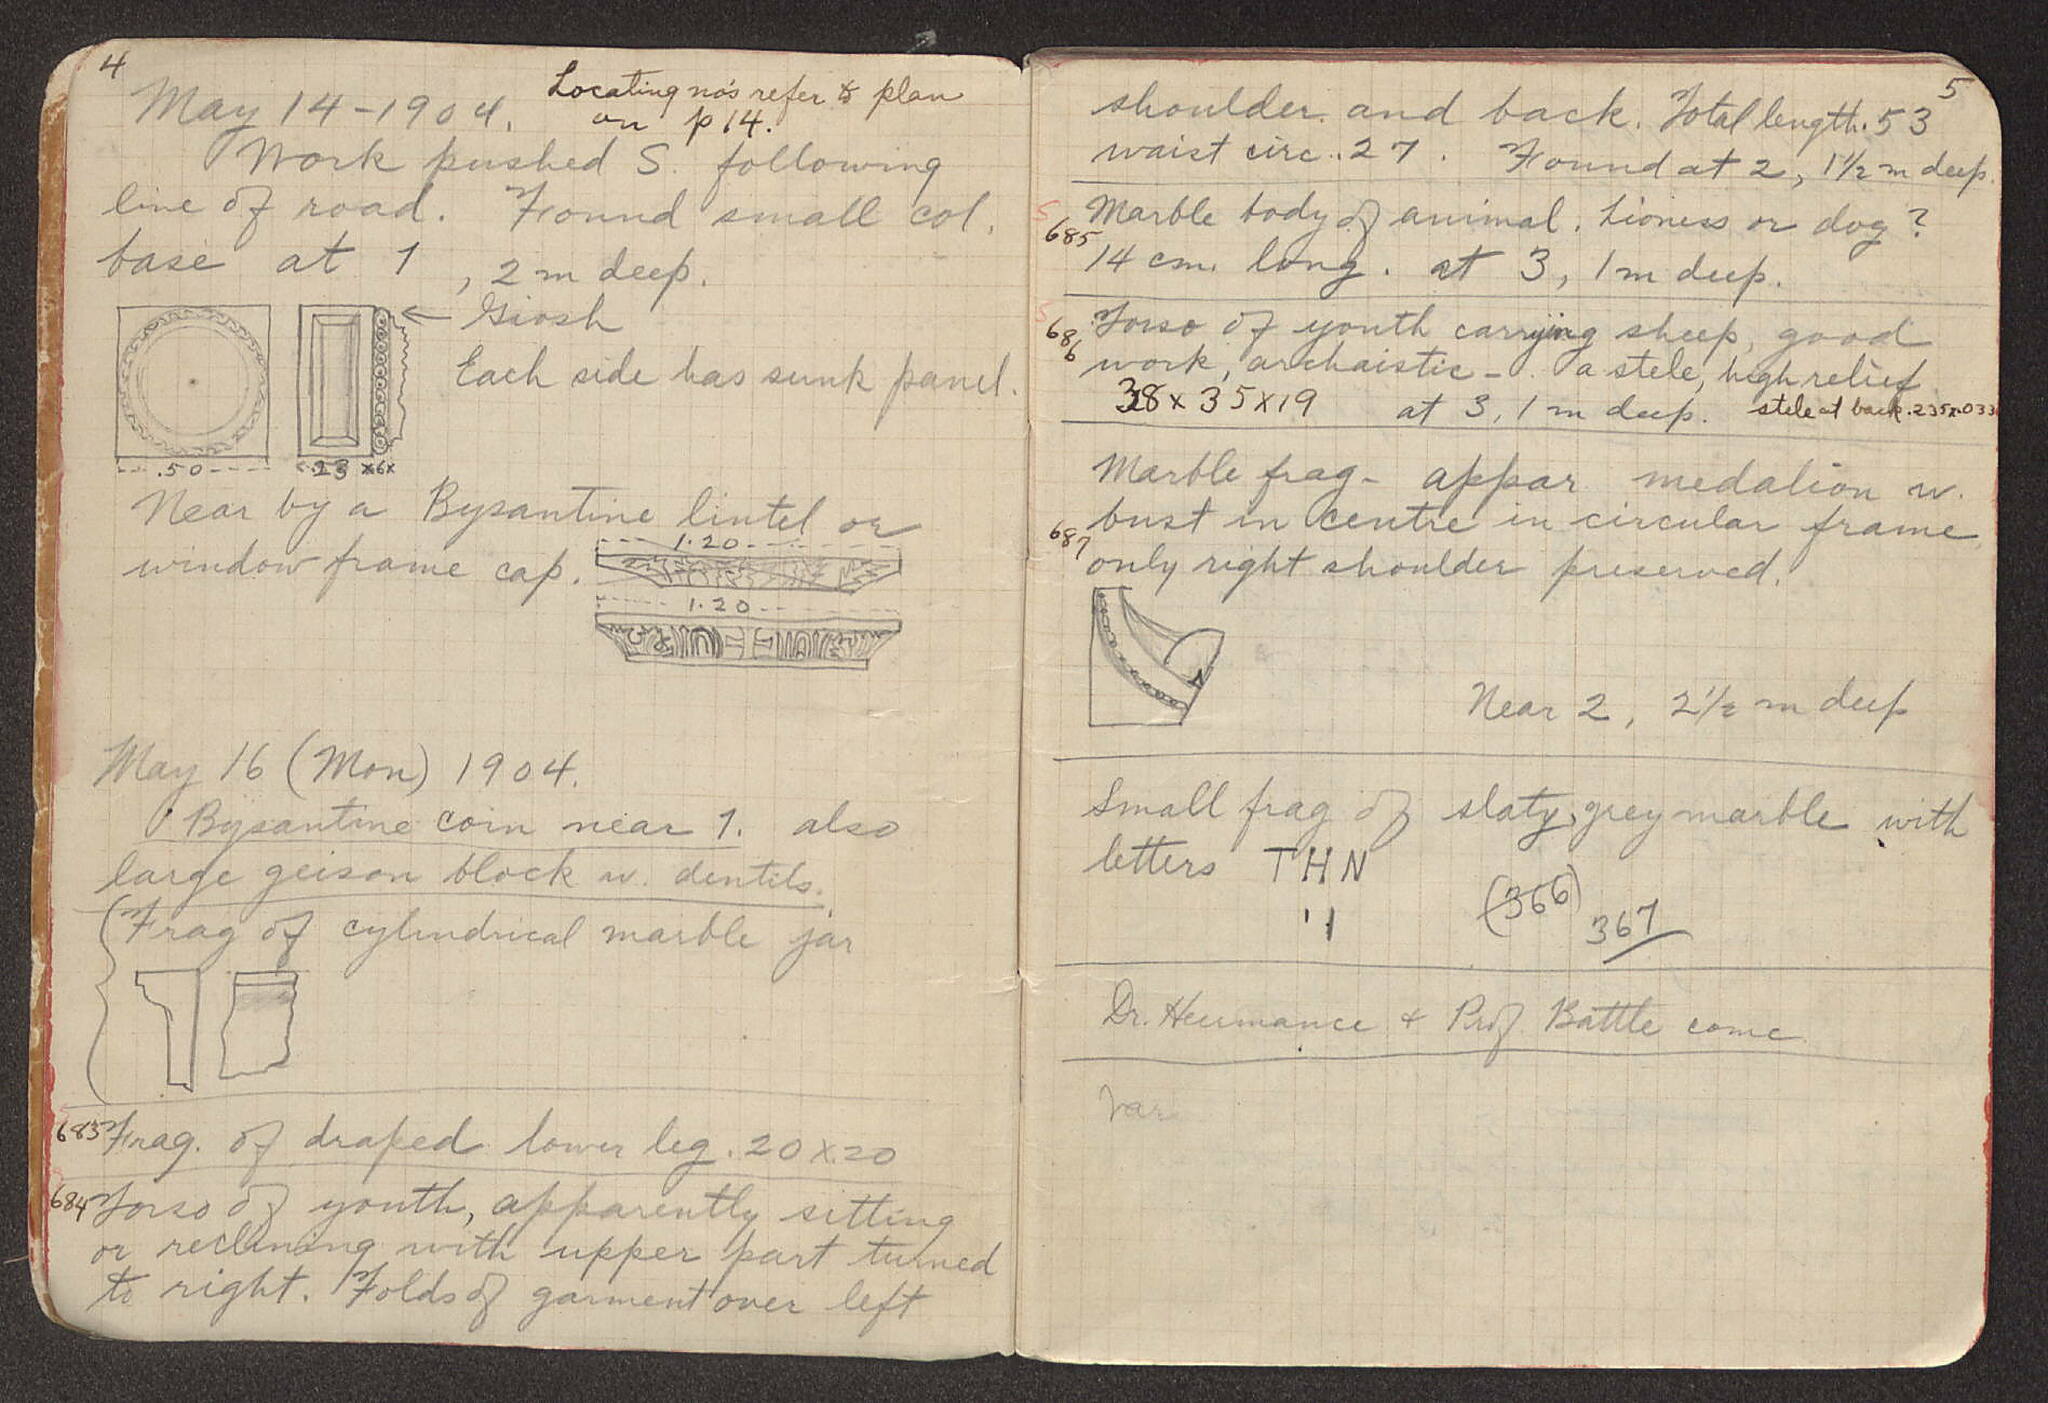 4
May 14-1904. Locating no's refer to plan
on p 14.
Work pushed S. following
line of road. Found small col.
base at 1, 2 m deep.
Giosh
Each side has sunk panel.
.50 .23 x6x
Near by a Bysantine lintel or
window frame cap.
1.20
1.20
May 16 (Mon) 1904.
Bysantine coin near 1. also
large geison block w. dentils.
Frag of cylindrical marble jar
683 Frag. of draped lower leg .20 x .20
684 Torso of youth, apparently sitting
or reclining with upper part turned
to right. Folds of garment over left
5
shoulder and back. Total length .53
waist circ. .27. Found at 2, 1 1/2 m deep.
S
685 Marble body of animal. Lioness or dog?
14 cm. long. at 3, 1 m deep.
S
686 Torso of youth carrying sheep, good
work, archaistic - a stele, high relief
38 x 35 x 19 at 3, 1 m deep. stele at back .235 x .033
Marble frag- appar medalion w.
687 bust in centre in circular frame
only right shoulder preserved.
Near 2, 2 1/2 m deep
Small frag of slaty, grey marble with
letters THN
(366) 367
Dr. Heermance + Prof Battle come
Var